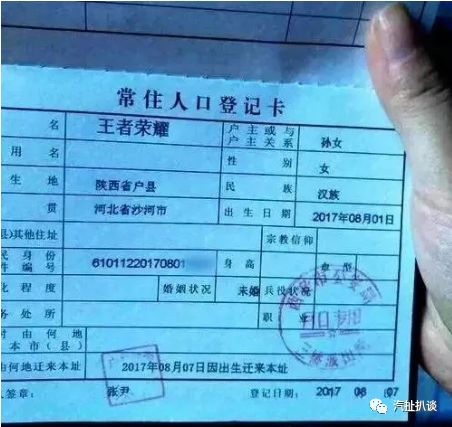 常住人口登记卡
名 王者荣耀 户主或与户主关系 孙女
用名 性别 女
生地 陕西省户县 民族 汉族
贯 河北省沙河市 出生日期 2017年08月01日
县)其他住址 宗教信仰
民身份件编号 61011220170801 身高 血型
化程度 婚姻状况 未婚 兵役状况
务处所 职业
时由何地本市(县)
由何地迁来本址 2017年08月07日因出生迁来本址
签章: 张尹 登记日期: 2017 08 07
户口专用
汽扯扒谈